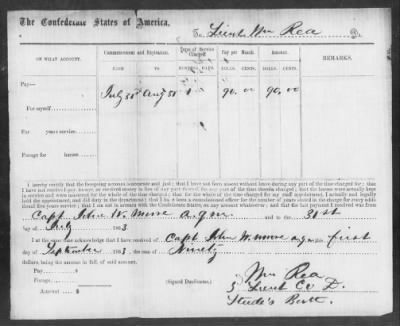 The Confederate States of America,
To Lieut Wm Rea Dr.
ON WHAT ACCOUNT.
Commencement and Expiration.
Term of Service Charged.
Pay per Month.
Amount.
REMARKS.
FROM TO MONTHS. DAYS. DOLLS. CENTS. DOLLS. CENTS.
Pay—
For myself July 31st Aug 31 1 90 00 90 00
For years service:
Forage for horses:
I hereby certify that the foregoing account is accurate and just; that I have not been absent without leave during any part of the time charged for; that
I have not received pay, forage, or received money in lieu of any part thereof for any part of the time therein charged; that the horses were actually kept
in service and were mustered for the whole of the time charged; that for the whole of the time charged for my staff appointment, I actually and legally
held the appointment, and did duty in the department; that I have been a commissioned officer for the number of years stated in the charge for every additional
five years service; that I am not in arrears with the Confederate States, on any account whatsoever; and that the last payment I received was from
Capt. John W. a.q.m. and to the 31st
day of July 1863
I at the same time acknowledge that I have received of Capt John W. a.q.m. this first
day of September 1863, the sum of Ninety
dollars, being the amount in full of said account.
Pay $
Forage
Amount $
(Signed Duplicates.)
Wm Rea
Lieut Co D.
Batt.